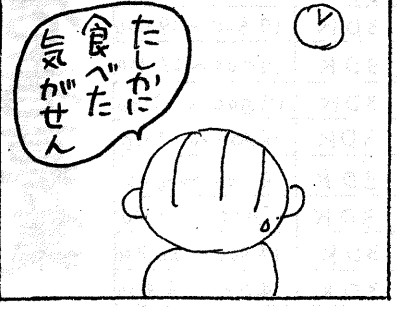 たしかに
食べた
気がせん